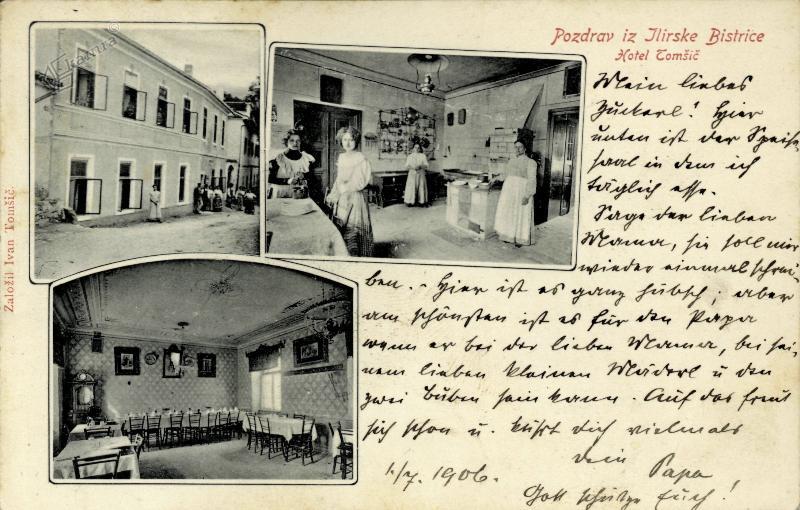 Pozdrav iz Ilirske Bistrice
Hotel Tomšič
Mein liebes
Zuckerl! Hier
unten ist der Speise-
saal in dem ich
täglich esse.
Sage der lieben
Mama, sie soll mir
wieder einmal schrei-
ben. - Hier ist es ganz hübsch; aber
am schönsten ist es für den Papa
wenn er bei der lieben Mama, bei sei-
nem lieben kleinen Maderl u den
zwei Buben sein kann. Auf das freut
sich schon u. küsst dich vielmals
dein Papa
1/7. 1906.
Gott schütze Euch!
Založil Ivan Tomšič
Kamra